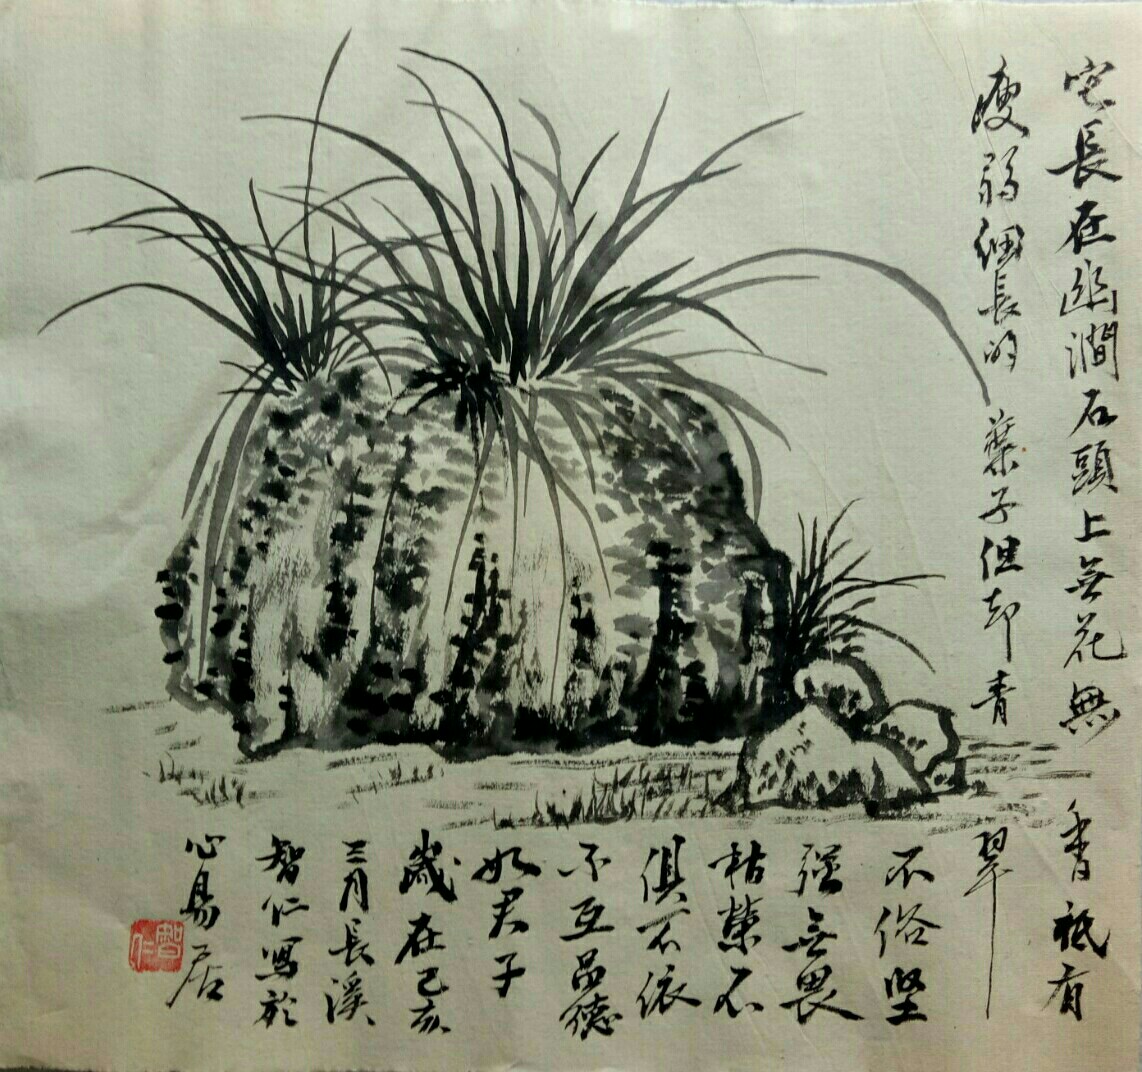 它長在幽澗石頭上无花無香祇有
瘦弱細長的葉子但却青翠
不俗堅
强无畏
枯榮不
俱不依
不互品德
如君子
歲在己亥
三月長溪
智仁寫於
心易居
智仁